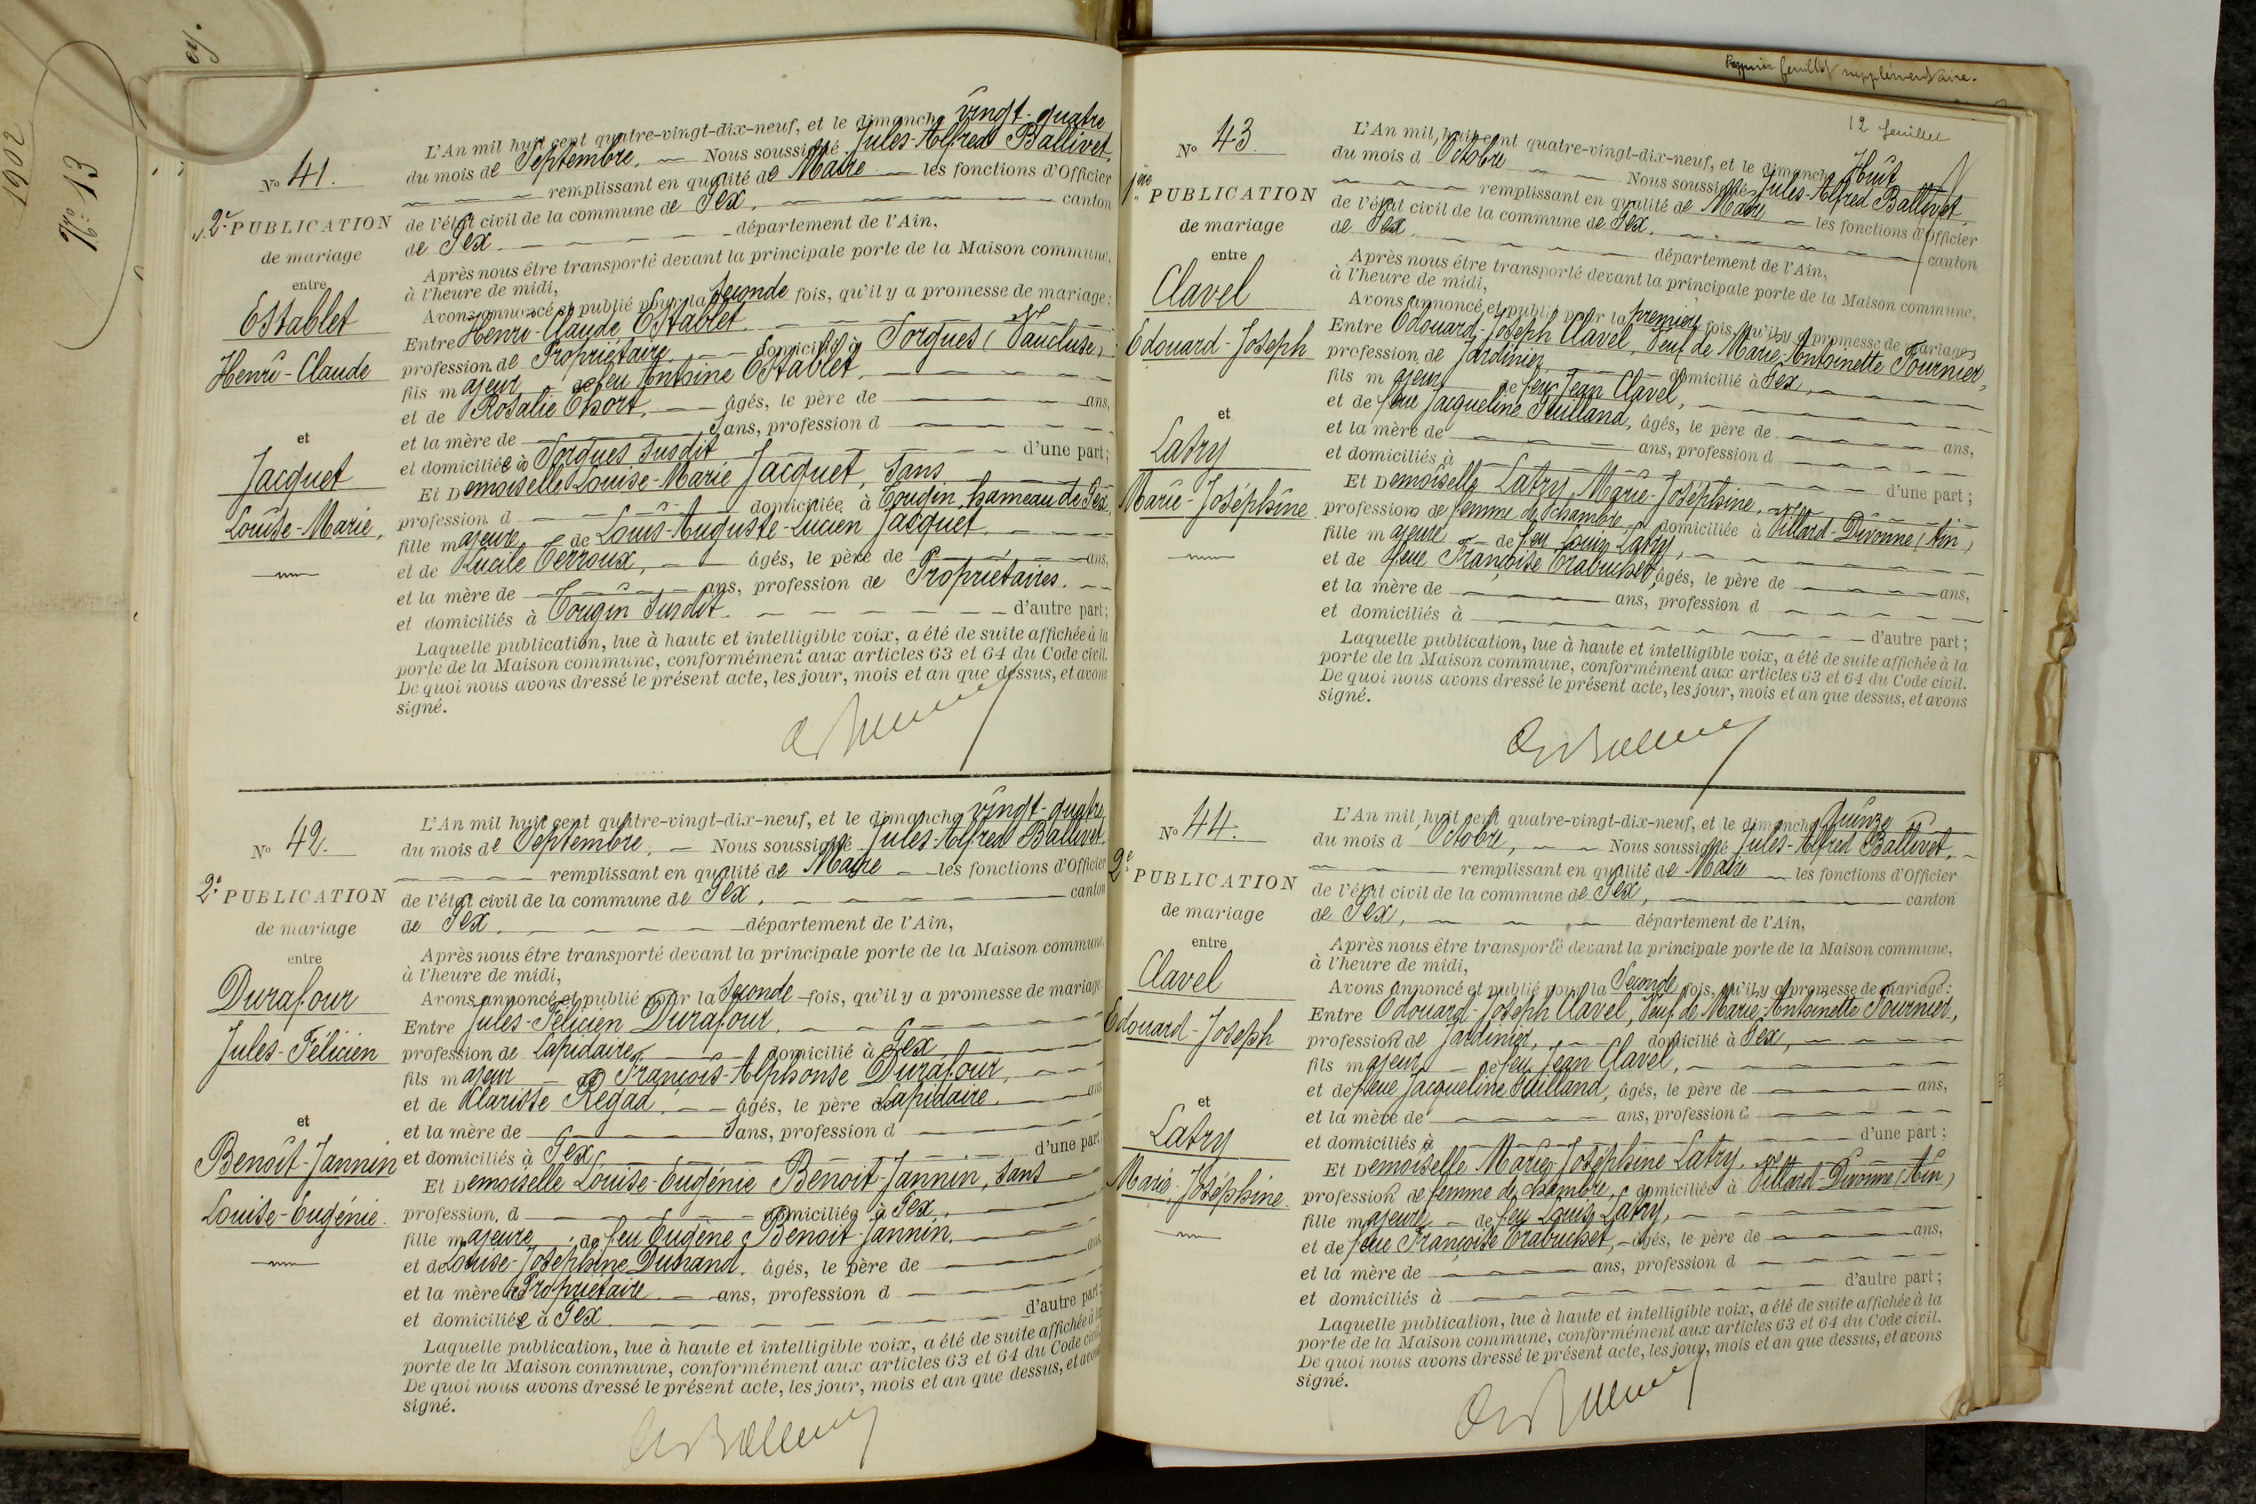 1902
N° 13
ey.
N° 41.
2e PUBLICATION
de mariage
entre
Establet
Henri-Claude
et
Jacquet
Louise-Marie,
L'An mil huit cent quatre-vingt-dix-neuf, et le dimanche vingt-quatre
du mois de Septembre. Nous soussigné Jules-Alfred Ballivet,
remplissant en qualité de Maire les fonctions d'Officier
de l'état civil de la commune de Gex, canton
de Gex. département de l'Ain,
Après nous être transporté devant la principale porte de la Maison commune,
à l'heure de midi,
Avons annoncé et publié pour la Seconde fois, qu'il y a promesse de mariage:
Entre Henri-Claude Establet
profession de Propriétaire domicilié à Sorgues (Vaucluse)
fils majeur de feu Antoine Establet,
et de Rosalie Chort, âgés, le père de ans,
et la mère de ans, profession d
et domiciliée à Sorgues susdit d'une part;
Et Demoiselle Louise-Marie Jacquet, sans
profession d domiciliée à Tougin, hameau de Gex,
fille majeure, de Louis-Auguste-Lucien Jacquet
et de Lucile Terroux, âgés, le père de ans,
et la mère de ans, profession de Propriétaires.
et domiciliés à Tougin susdit. d'autre part;
Laquelle publication, lue à haute et intelligible voix, a été de suite affichée à la
porte de la Maison commune, conformément aux articles 63 et 64 du Code civil.
De quoi nous avons dressé le présent acte, les jour, mois et an que dessus, et avons
signé.
N° 42.
2e PUBLICATION
de mariage
entre
Durafour
Jules-Félicien
et
Benoit-Jannin
Louise-Eugénie.
L'An mil huit cent quatre-vingt-dix-neuf, et le dimanche vingt-quatre
du mois de Septembre, Nous soussigné Jules-Alfred Ballivet,
remplissant en qualité de Maire les fonctions d'Officier
de l'état civil de la commune de Gex, canton
de Gex. département de l'Ain,
Après nous être transporté devant la principale porte de la Maison commune,
à l'heure de midi,
Avons annoncé et publié pour la Seconde fois, qu'il y a promesse de mariage.
Entre Jules-Félicien Durafour,
profession de Lapidaire, domicilié à Gex
fils majeur de François-Alphonse Durafour,
et de Clarisse Regad, âgés, le père Lapidaire. ans
et la mère de Sans, profession d
et domiciliés à Gex, d'une part.
Et Demoiselle Louise-Eugénie Benoit-Jannin, sans
profession, d domiciliée à Gex,
fille majeure de feu Eugène Benoit-Jannin,
et de Louise-Joséphine Dunand, âgés, le père de ans
et la mère Propriétaire ans, profession d
et domiciliée à Gex d'autre part;
Laquelle publication, lue à haute et intelligible voix, a été de suite affichée à la
porte de la Maison commune, conformément aux articles 63 et 64 du Code civil.
De quoi nous avons dressé le présent acte, les jour, mois et an que dessus, et avons
signé.
Premier feuillet supplémentaire.
12 feuillet
N° 43
1ère PUBLICATION
de mariage
entre
Clavel
Edouard-Joseph
et
Latry
Marie-Joséphine
L'An mil huit cent quatre-vingt-dix-neuf, et le dimanche Huit
du mois d'Octobre Nous soussigné Jules-Alfred Ballivet,
remplissant en qualité de Maire les fonctions d'Officier
de l'état civil de la commune de Gex, canton
de Gex. département de l'Ain,
Après nous être transporté devant la principale porte de la Maison commune,
à l'heure de midi,
Avons annoncé et publié pour la première fois, qu'il y a promesse de mariage
Entre Edouard-Joseph Clavel, Veuf de Marie-Antoinette Fournier,
profession de Jardinier, domicilié à Gex,
fils majeur de feu Jean Clavel,
et de feue Jacqueline Guilland, âgés, le père de ans,
et la mère de ans, profession d
et domiciliés à d'une part;
Et Demoiselle Latry Marie-Joséphine,
profession de femme de chambre, domiciliée à Villard-Divonne (Ain)
fille majeure de feu Louis Latry,
et de feue Françoise Trabuchet, âgés, le père de ans,
et la mère de ans, profession d
et domiciliés à d'autre part;
Laquelle publication, lue à haute et intelligible voix, a été de suite affichée à la
porte de la Maison commune, conformément aux articles 63 et 64 du Code civil.
De quoi nous avons dressé le présent acte, les jour, mois et an que dessus, et avons
signé.
N° 44.
2e PUBLICATION
de mariage
entre
Clavel
Edouard-Joseph
et
Latry
Marie-Joséphine
L'An mil huit cent quatre-vingt-dix-neuf, et le dimanche Quinze
du mois d'Octobre, Nous soussigné Jules-Alfred Ballivet,
remplissant en qualité de Maire les fonctions d'Officier
de l'état civil de la commune de Gex, canton
de Gex, département de l'Ain,
Après nous être transporté devant la principale porte de la Maison commune,
à l'heure de midi,
Avons annoncé et publié pour la Seconde fois, qu'il y a promesse de mariage:
Entre Edouard-Joseph Clavel, Veuf de Marie-Antoinette Fournier,
profession de Jardinier, domicilié à Gex,
fils majeur de feu Jean Clavel,
et de feue Jacqueline Guilland, âgés, le père de ans,
et la mère de ans, profession d
et domiciliés à d'une part;
Et Demoiselle Marie-Joséphine Latry,
profession de femme de chambre, domiciliée à Villard-Divonne (Ain)
fille majeure de feu Louis Latry,
et de feue Françoise Trabuchet, âgés, le père de ans,
et la mère de ans, profession d
et domiciliés à d'autre part;
Laquelle publication, lue à haute et intelligible voix, a été de suite affichée à la
porte de la Maison commune, conformément aux articles 63 et 64 du Code civil.
De quoi nous avons dressé le présent acte, les jour, mois et an que dessus, et avons
signé.